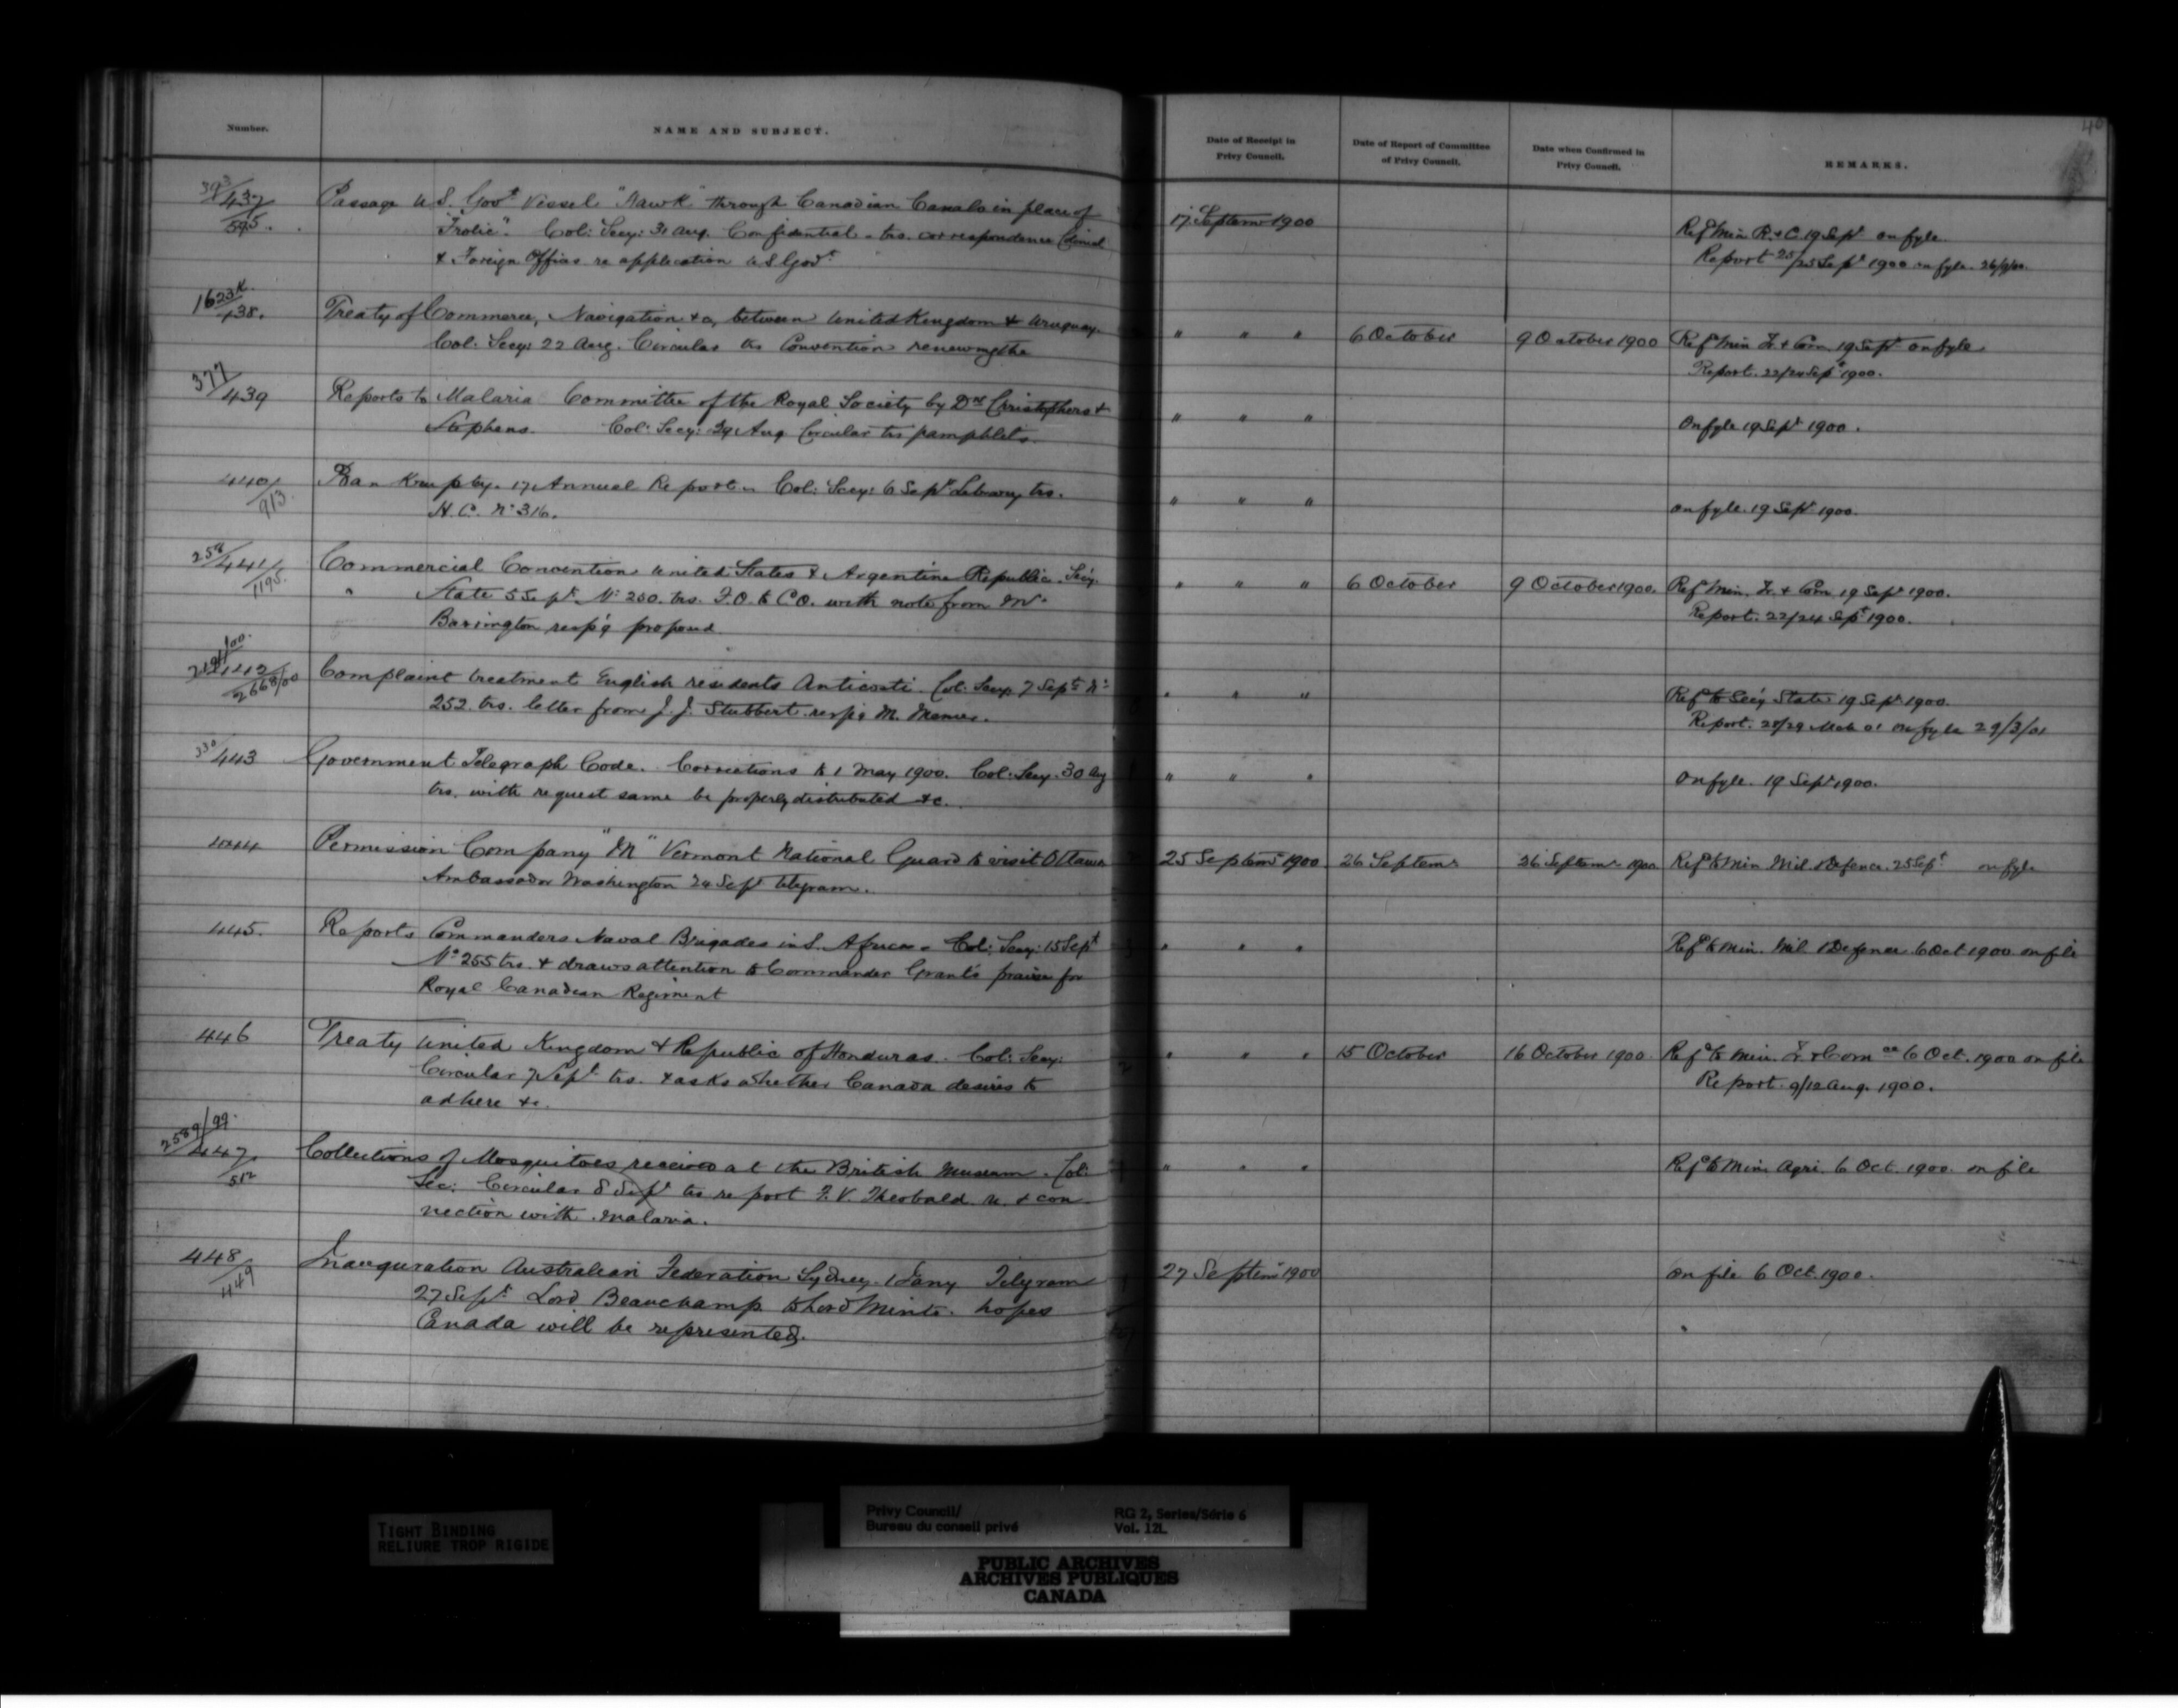 Number.
NAME AND SUBJECT.
Date of Receipt in
Privy Council.
Date of Report of Committee
of Privy Council.
Date when Confirmed in
Privy Council.
REMARKS.
393/437/595.
Passage U.S. Govt Vessel "Hawk" through Canadian Canals in place of
"Frolic". Col: Secy: 31 Aug. Confidential. trs. correspondence Colonial
& Foreign Offices re application U S Govt
17 Septemr 1900
Refd Min R. & C. 19 Sept on fyle.
Report 25/25 Sept 1900 on fyle.
1623K/438.
Treaty of Commerce, Navigation &c, between United Kingdom & Uruguay.
Col: Secy: 22 Aug. Circular trs Convention renewing the
" " "
6 October
9 October 1900
Ref Min Tr. & Com. 19 Sept on fyle
Report. 22/24 Sept 1900.
377/439
Reports to Malaria Committee of the Royal Society by Drs Christophers &
Stephens. Col: Secy: 29 Aug Circular trs pamphlets.
" " "
On fyle 19 Sept 1900.
440/913
Bankruptcy. 17 Annual Report. Col: Secy: 6 Sept Library trs.
H.C. No 316.
" " "
on fyle. 19 Sept 1900.
258/441/1195.
Commercial Convention United States & Argentine Republic. Secy.
State 5 Sept No 250. trs. F.O. to C.O. with note from Mr
Barrington resp'g proposed.
" " "
6 October
9 October 1900.
Ref Min. Tr. & Com 19 Sept 1900.
Report. 22/24 Sept 1900.
442/2668/00
Complaint treatment English residents Anticosti. Col: Secy 7 Sept No
252. trs. letter from J. J. Stubbert resp'g M. Menier.
" " "
Refd to Secy State 19 Sept 1900.
Report. 28/29 Mch 01 on fyle 29/3/01
330/443
Government Telegraph Code. Corrections to 1 May 1900. Col: Secy. 30 Aug
trs. with request same be properly distributed &c.
" " "
On fyle. 19 Sept 1900.
444
Permission Company "M" Vermont National Guard to visit Ottawa
Ambassador Washington 24 Sept telegram.
25 Septemr 1900.
26 Septemr
26 Septemr 1900
Refd to Min Mil. & Defence. 25 Sept on fyle
445.
Reports Commanders Naval Brigades in S. Africa. Col: Secy: 15 Sept
No 255 trs. & draws attention to Commander Grant's praise for
Royal Canadian Regiment
" " "
Refd to Min. Mil & Defence. 6 Oct 1900. on file
446
Treaty United Kingdom & Republic of Honduras. Col: Secy:
Circular 7 Sept trs. & asks whether Canada desires to
adhere &c.
" " "
15 October
16 October 1900.
Refd to Min. Tr. & Com 6 Oct. 1900 on file
Report. 9/12 Aug. 1900.
2589/99/447/512
Collections of Mosquitoes received at the British Museum. Col:
Sec: Circular 8 Sept trs report F. V. Theobald. re & con
nection with Malaria.
" " "
Refd to Min. Agri. 6 Oct. 1900. on file
448/449
Inauguration Australian Federation Sydney. 1 Jany Telegram
27 Sept Lord Beauchamp to Lord Minto. hopes
Canada will be represented.
27 Septemr 1900
On file 6 Oct. 1900.
TIGHT BINDING
RELIURE TROP RIGIDE
Privy Council/
Bureau du conseil privé
RG 2, Series/Série 6
Vol. 12L
PUBLIC ARCHIVES
ARCHIVES PUBLIQUES
CANADA